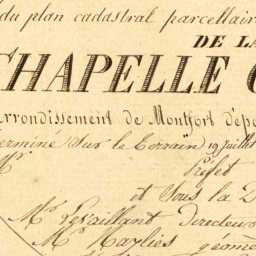 du plan cadastral parcellair
DE LA
CHAPELLE C
Arrondissement de Montfort dép
Terminé sur le Terrain 19 juillet
Mr
Préfet
et Sous la D
Mr Levaillant directeur
Mr Haylies géomè